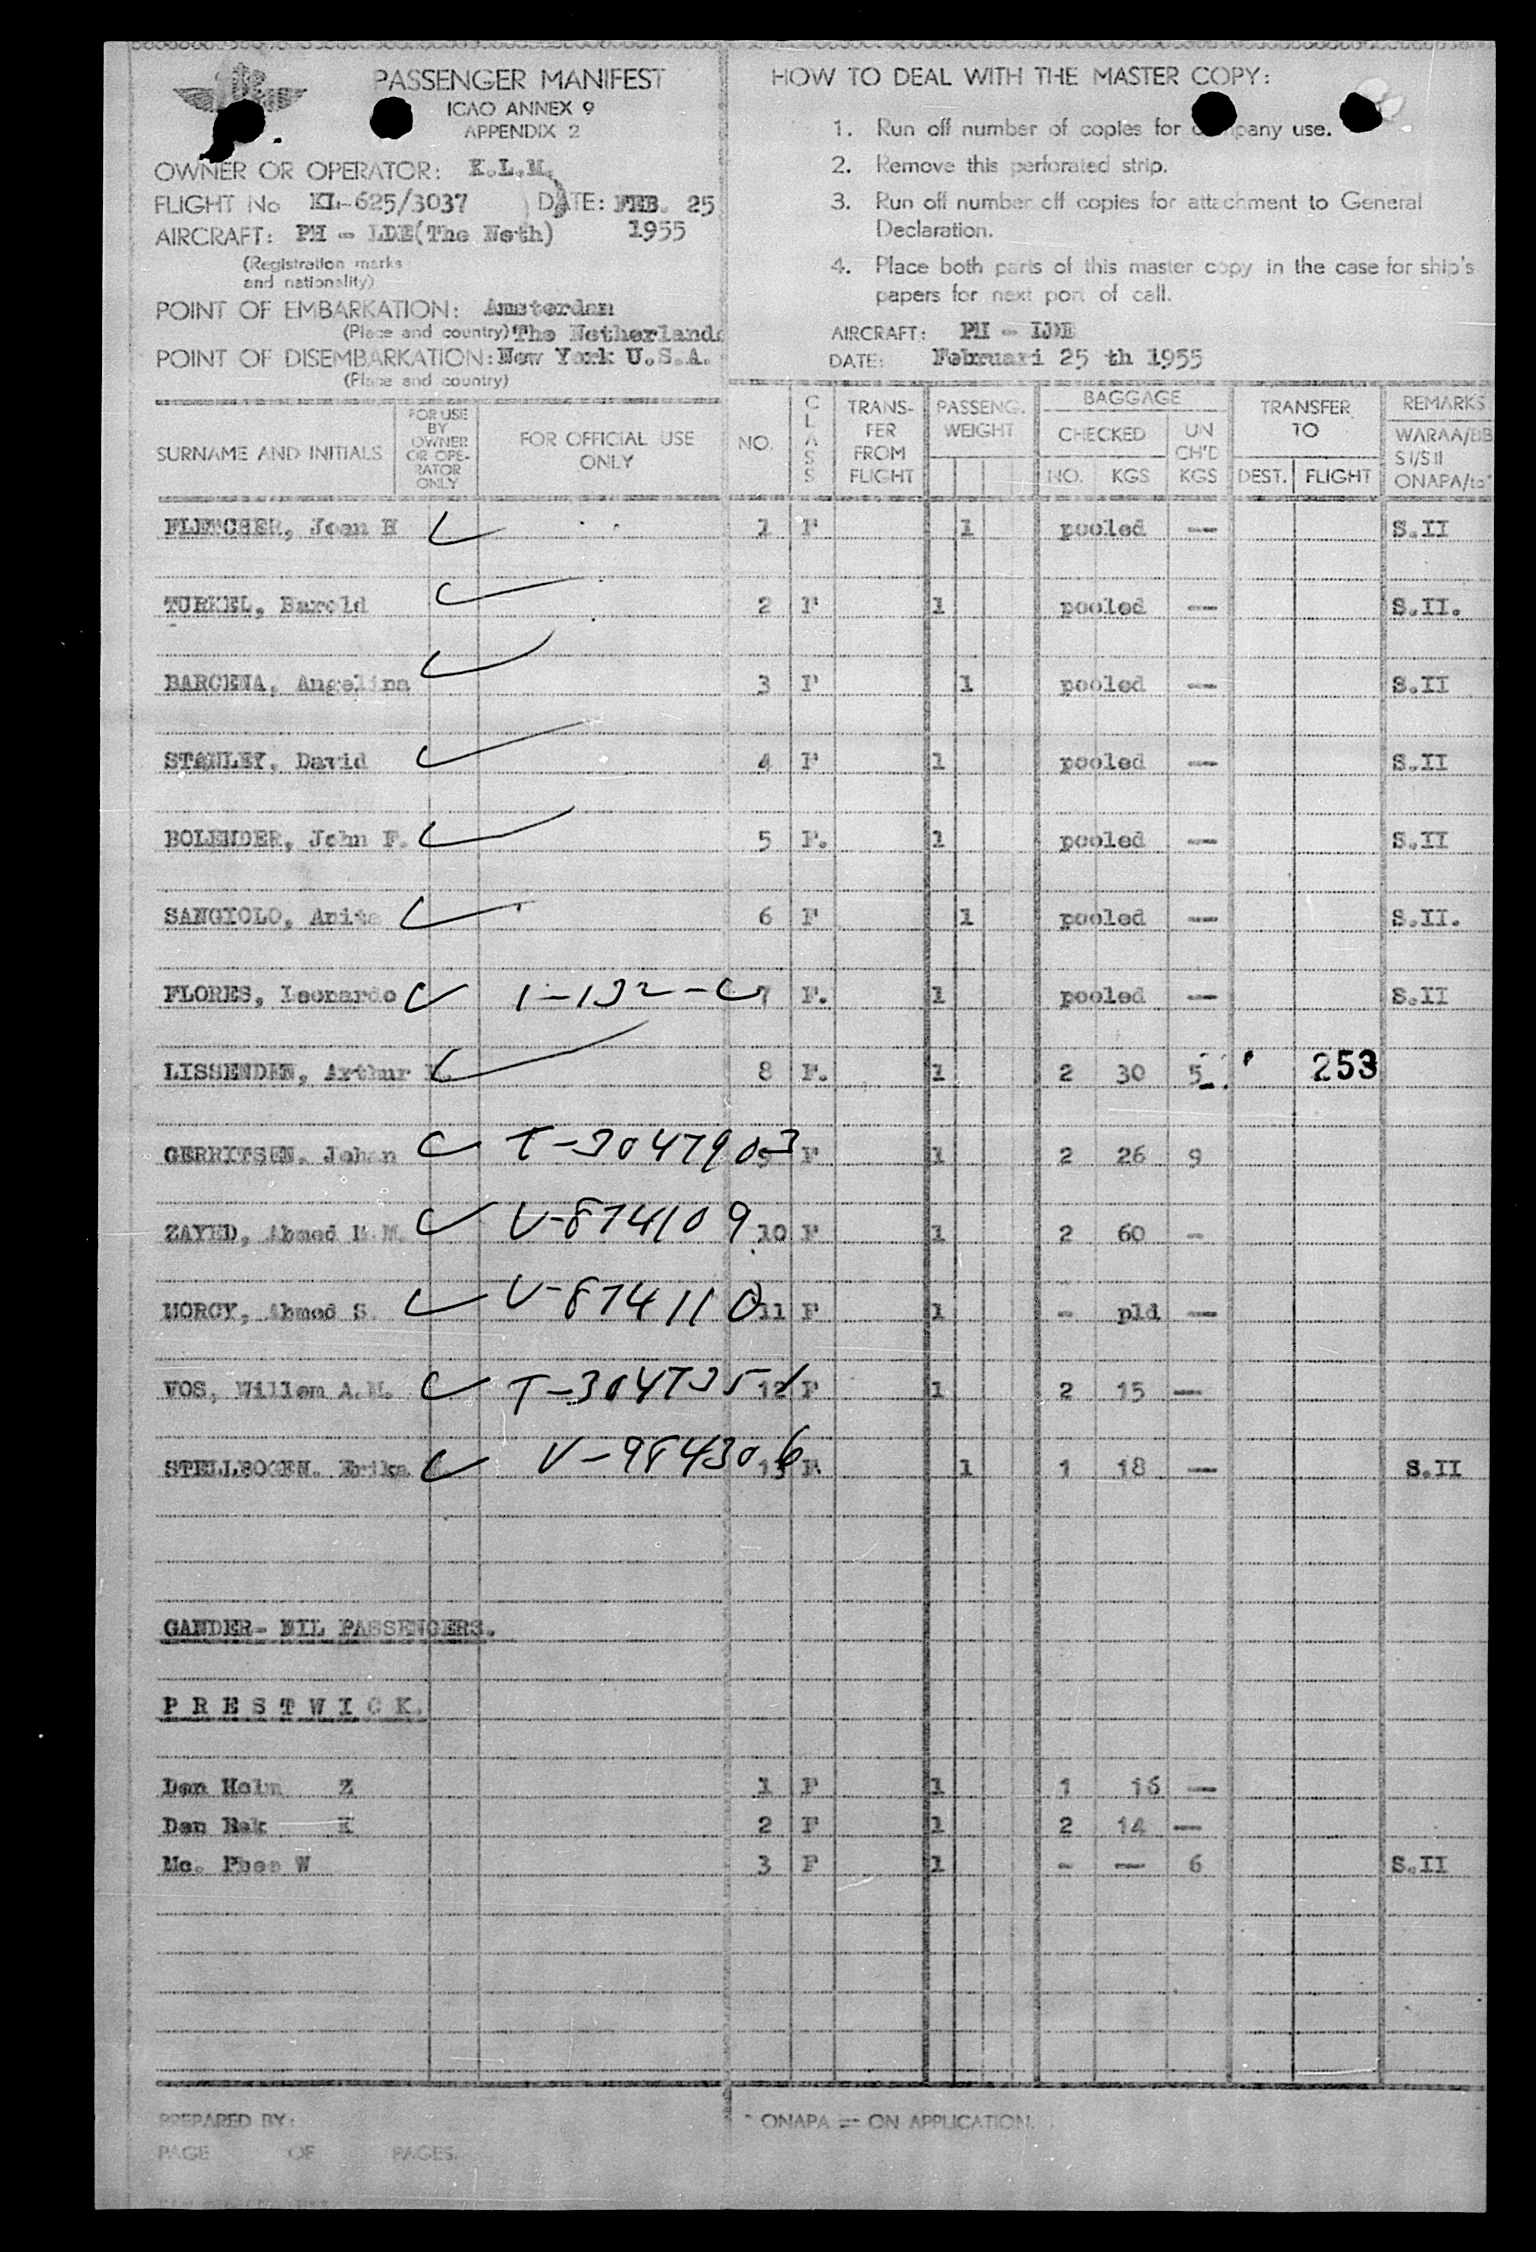 PASSENGER MANIFEST
ICAO ANNEX 9
APPENDIX 2
OWNER OR OPERATOR: K.L.M.
FLIGHT No KL-625/3037 DATE: FEB. 25
AIRCRAFT: PH - LDE(The Neth) 1955
(Registration marks
and nationality)
POINT OF EMBARKATION: Amsterdam
(Place and country) The Netherlands
POINT OF DISEMBARKATION: New York U.S.A.
(Place and country)
HOW TO DEAL WITH THE MASTER COPY:
1. Run off number of copies for company use.
2. Remove this perforated strip.
3. Run off number off copies for attachment to General
Declaration.
4. Place both parts of this master copy in the case for ship's
papers for next port of call.
AIRCRAFT: PH - LDE
DATE: Februari 25 th 1955
SURNAME AND INITIALS
FOR USE
BY
OWNER
OR OPE-
RATOR
ONLY
FOR OFFICIAL USE
ONLY
NO.
CLASS
TRANS-
FER
FROM
FLIGHT
PASSENG.
WEIGHT
BAGGAGE
CHECKED
NO. KGS
UN
CH'D
KGS
TRANSFER
TO
DEST. FLIGHT
REMARKS
WARAA/BB
SI/SII
ONAPA/to
FLETCHER, Joan H 1 F 1 pooled — S.II
TURKEL, Harold 2 F 1 pooled — S.II.
BARCENA, Angelina 3 F 1 pooled — S.II
STANLEY, David 4 F 1 pooled — S.II
BOLENDER, John F. 5 F. 1 pooled — S.II
SANGIOLO, Anita 6 F 1 pooled — S.II.
FLORES, Leonardo 1-132-C 7 F. 1 pooled — S.II
LISSENDEN, Arthur 8 F. 1 2 30 5 253
GERRITSEN, Johan T-3047903 9 F 1 2 26 9
ZAYED, Ahmed M.M. V-874109 10 F 1 2 60 -
MORCY, Ahmed S. V-874110 11 F 1 - pld —
VOS, Willem A.M. T-3047351 12 F 1 2 15 —
STELLBOGEN, Erika V-984306 13 F. 1 1 18 — S.II
GANDER- NIL PASSENGERS.
PRESTWICK.
Den Holm Z 1 F 1 1 16 —
Den Hak K 2 F 1 2 14 —
Mc. Phee W 3 F 1 - — 6 S.II
PREPARED BY:
PAGE OF PAGES.
* ONAPA = ON APPLICATION.